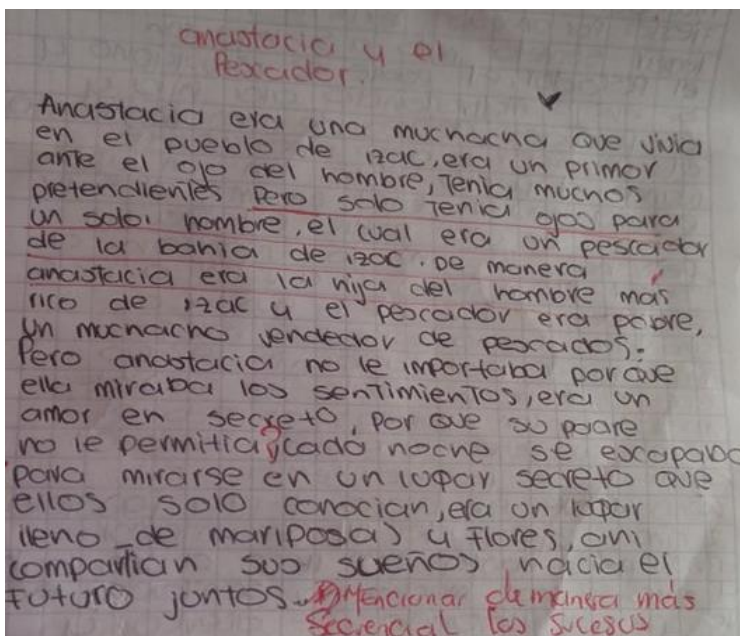 anastacia y el
Pescador.
Anastacia era una muchacha que vivia
en el pueblo de izac, era un primor
ante el ojo del hombre, Tenia muchos
pretendientes Pero solo Tenia ojos para
un solo, hombre, el cual era un pescador
de la bahia de izac. De manera
anastacia era la hija del hombre más
rico de izac y el pescador era pobre,
un muchacho vendedor de pescados.
Pero anastacia no le importaba porque
ella miraba los sentimientos, era un
amor en secreto, por que su padre
no le permitia, cada noche se escapaba
para mirarse en un lugar secreto que
ellos solo conocian, era un lugar
lleno de mariposas y flores, ahi
compartian sus sueños hacia el
futuro juntos. Mencionar de manera más
Secencial los sucesos